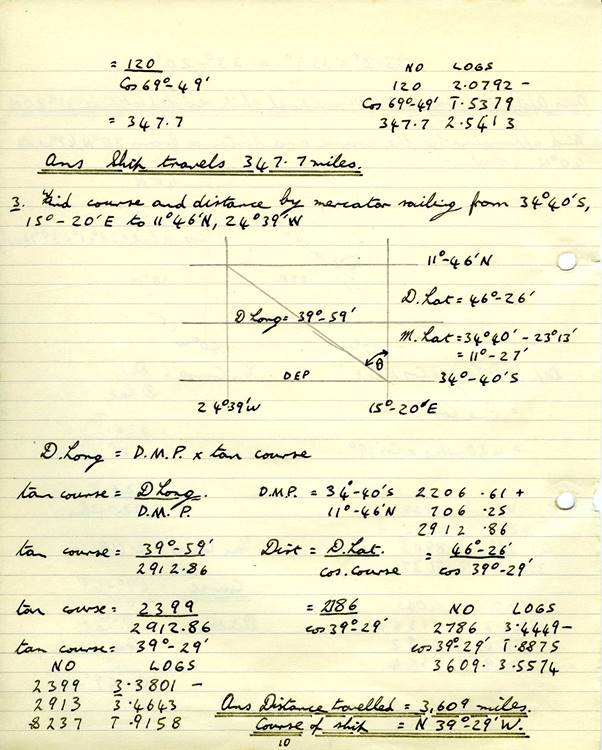 = 120
Cos 69°-49'
= 347.7
NO LOGS
120 2.0792 -
Cos 69°-49' 1̄.5379
347.7 2.5413
Ans Ship travels 347.7 miles.
3. Find course and distance by mercator sailing from 34°40'S,
15°-20'E to 11°46'N, 24°39'W
11°-46'N
D.Lat = 46°-26'
D Long = 39°-59'
M.Lat = 34°40' - 23°13'
= 11°-27'
θ
DEP
34°-40'S
24°39'W 15°-20'E
D.Long = D.M.P. x tan course
tan course = D Long.
D.M.P.
D.M.P. = 34°-40'S 2206.61 +
11°-46'N 706.25
2912.86
tan course = 39°-59'
2912.86
Dist = D.Lat. = 46°-26'
cos.course cos 39°-29'
tan course = 2399
2912.86
tan course = 39°-29'
= 2786
cos 39°-29'
NO LOGS
2786 3.4449 -
cos 39°-29' 1̄.8875
3609. 3.5574
NO LOGS
2399 3.3801 -
2913 3.4643
8237 1̄.9158
Ans Distance travelled = 3,609 miles.
Course of ship = N 39°-29'W.
10